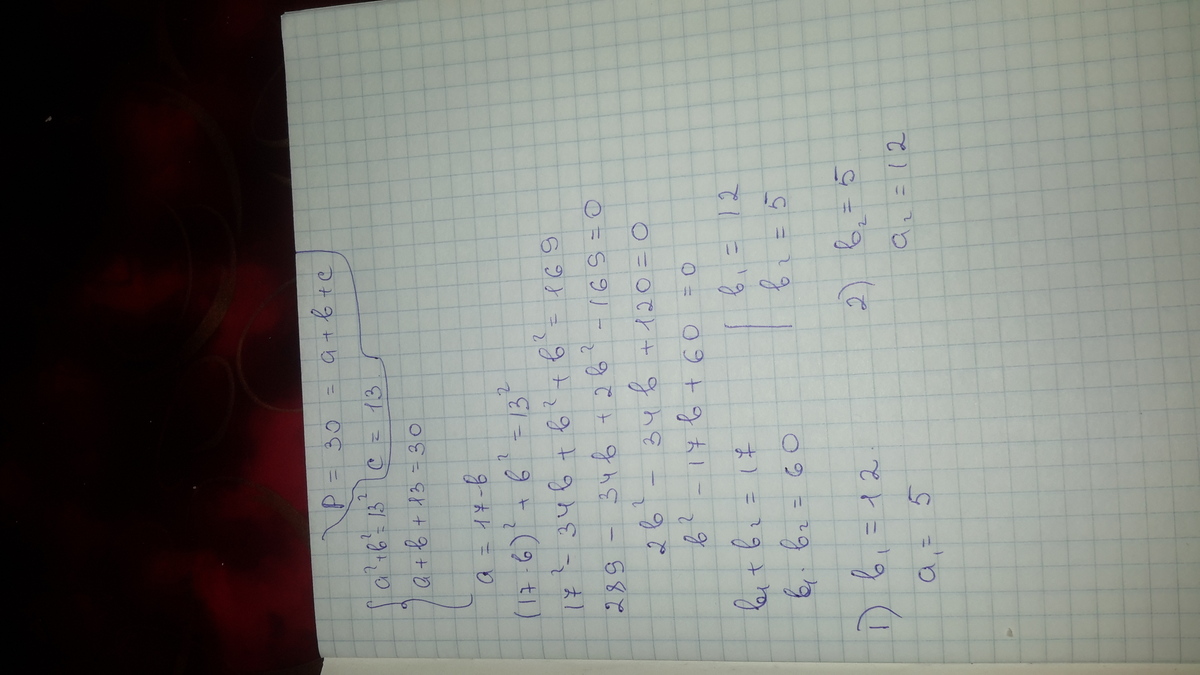 P = 30 = a + b + c
c = 13
a² + b² = 13²
a + b + 13 = 30
a = 17 - b
(17 - b)² + b² = 13²
17² - 34b + b² + b² = 169
289 - 34b + 2b² - 169 = 0
2b² - 34b + 120 = 0
b² - 17b + 60 = 0
b₁ + b₂ = 17 | b₁ = 12
b₁ · b₂ = 60 | b₂ = 5
1) b₁ = 12. 2) b₂ = 5
a₁ = 5 a₂ = 12